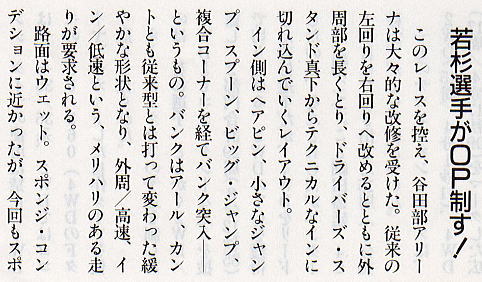 若杉選手がOP制す!
このレースを控え、谷田部アリー
ナは大々的な改修を受けた。従来の
左回りを右回りへ改めるとともに外
周部を長くとり、ドライバーズ・ス
タンド真下からテクニカルなインに
切れ込んでいくレイアウト。
イン側はヘアピン、小さなジャン
プ、スプーン、ビッグ・ジャンプ、
複合コーナーを経てバンク突入——
というもの。バンクはアール、カン
トとも従来型とは打って変わった緩
やかな形状となり、外周/高速、イ
ン/低速という、メリハリのある走
りが要求される。
路面はウェット。スポンジ・コン
デションに近かったが、今回もスポ